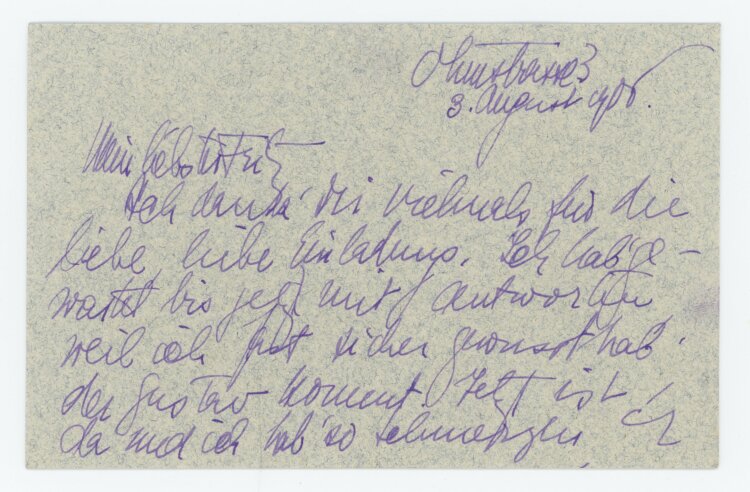 3. August 1906.
Mein liebster Fritz
Ich danke dir vielmals für die
liebe, liebe Einladung. Ich hab' ge-
wartet bis jetzt mit Antworten
weil ich fast sicher gewusst hab'
der Gustav kommt. Jetzt ist er
da und ich hab' so Schmerzen